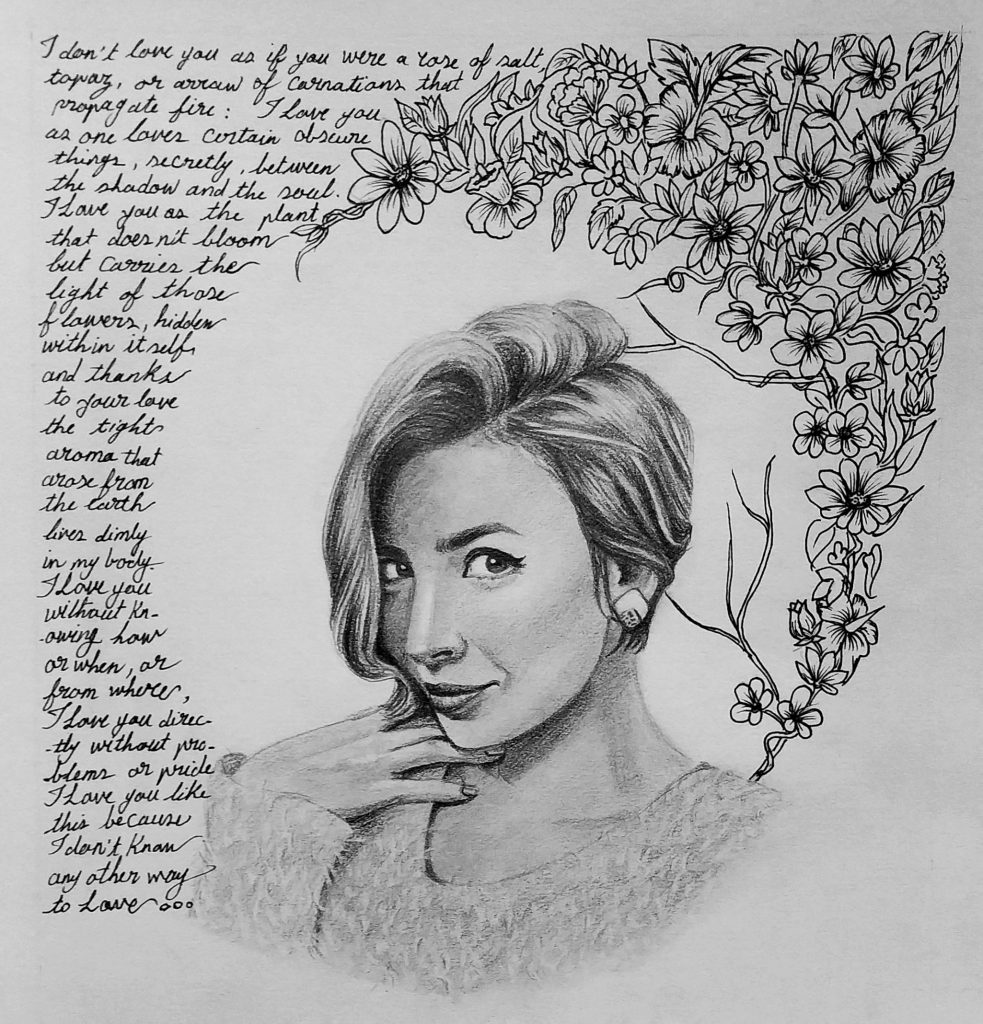 I don't love you as if you were a rose of salt,
topaz, or arrow of carnations that
propagate fire: I love you
as one loves certain obscure
things, secretly, between
the shadow and the soul.
I love you as the plant
that doesn't bloom
but carries the
light of those
flowers, hidden
within itself,
and thanks
to your love
the tight
aroma that
arose from
the earth
lives dimly
in my body.
I love you
without kn-
-owing how
or when, or
from where,
I love you direc-
-tly without pro-
blems or pride
I love you like
this because
I don't know
any other way
to love ...